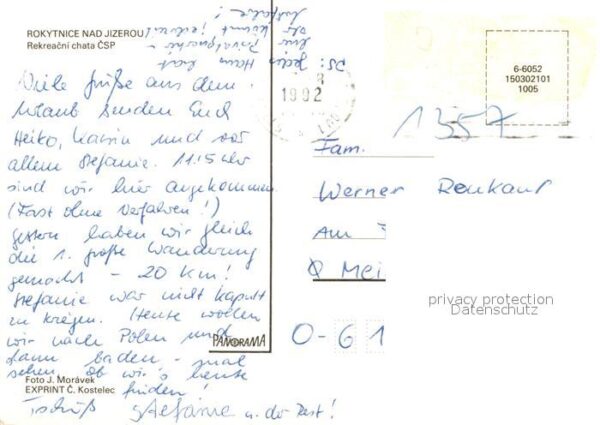 ROKYTNICE NAD JIZEROU
Rekreační chata ČSP
Viele Grüße aus dem
Urlaub senden Euch
Heiko, Katrin und vor
allem Stefanie. 11.15 Uhr
sind wir hier angekommen
(Fast ohne Verfahren!)
gestern haben wir gleich
die 1. große Wanderung
gemacht - 20 km!
Stefanie war nicht kaputt
zu kriegen. Heute wollen
wir nach Polen und
dann baden - mal
sehen ob wir's heute
finden!
Tschüß Stefanie u. der Rest!
PS: Jedes Haus hat
hier
Foto J. Morávek
EXPRINT Č. Kostelec
PANORAMA
1992
6-6052
150302101
1005
1357
Fam.
Werner Renkauf
Am
Mei
O-61
privacy protection
Datenschutz